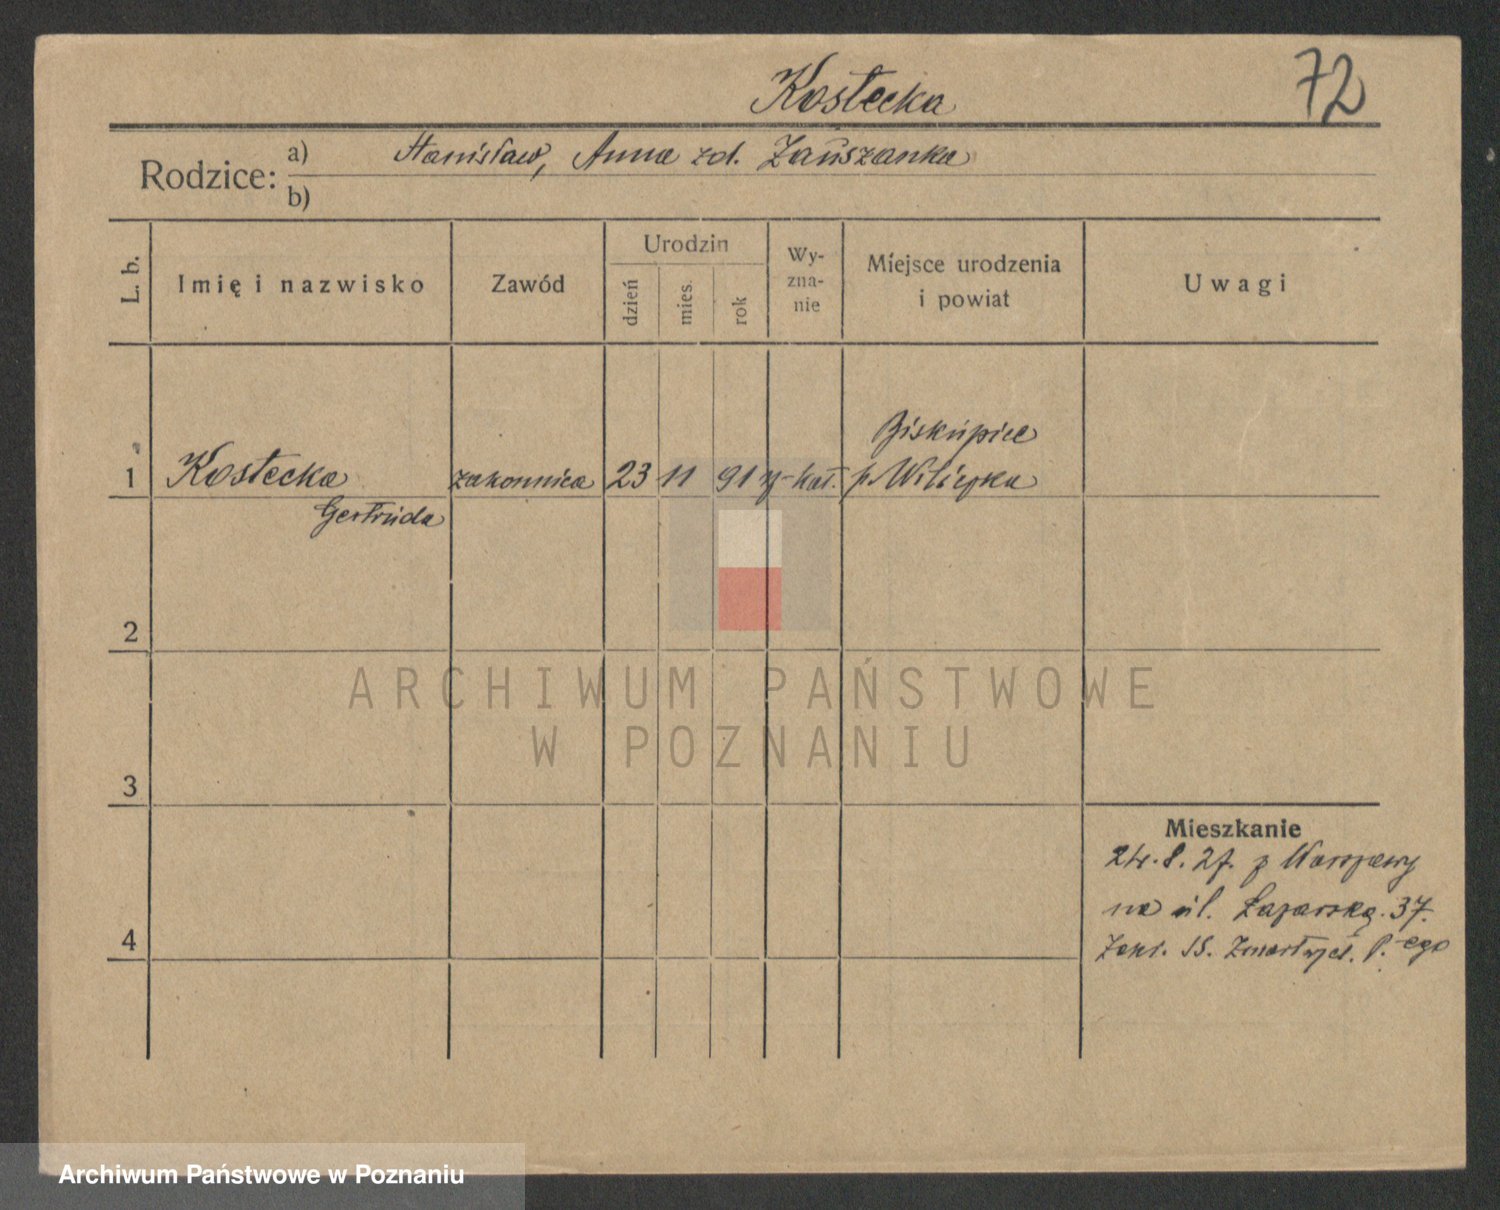 Kostecka
72
Rodzice: a) Stanisław, Anna zd. Zauszanka
b)
L. b.
Imię i nazwisko
Zawód
Urodzin
dzień
mies.
rok
Wy-
zna-
nie
Miejsce urodzenia
i powiat
Uwagi
Biskupiec
1 Kostecka zakonnica 23 11 91 rz-kat. p.
Gertruda
2
3
4
Mieszkanie
24.8.27. z Warszawy
na ul. Łazarską. 37.
Zmartwych. P.-ego
ARCHIWUM PAŃSTWOWE
W POZNANIU
Archiwum Państwowe w Poznaniu